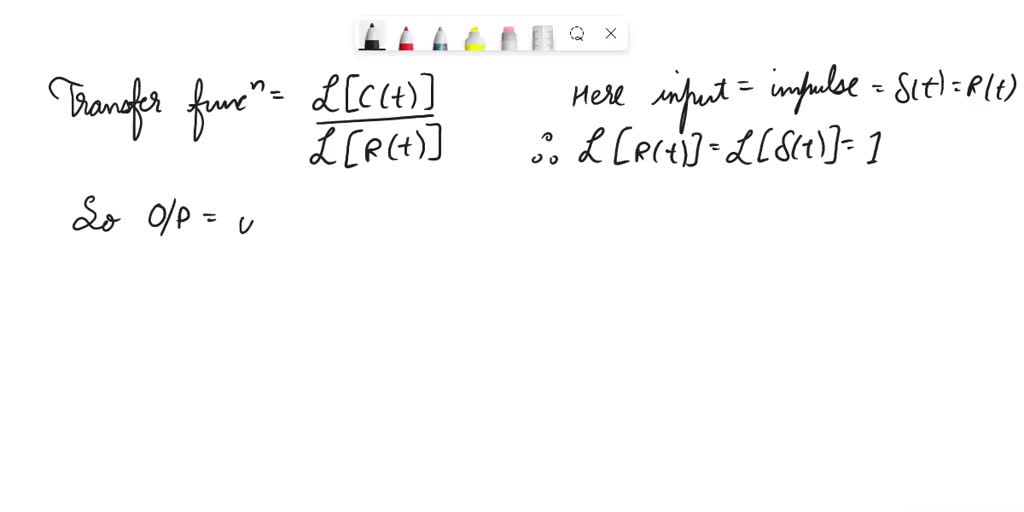 Transfer funcⁿ = ℒ[C(t)] / ℒ[R(t)]
Here input = impulse = δ(t) = R(t)
∴ ℒ[R(t)] = ℒ[δ(t)] = 1
So O/P =